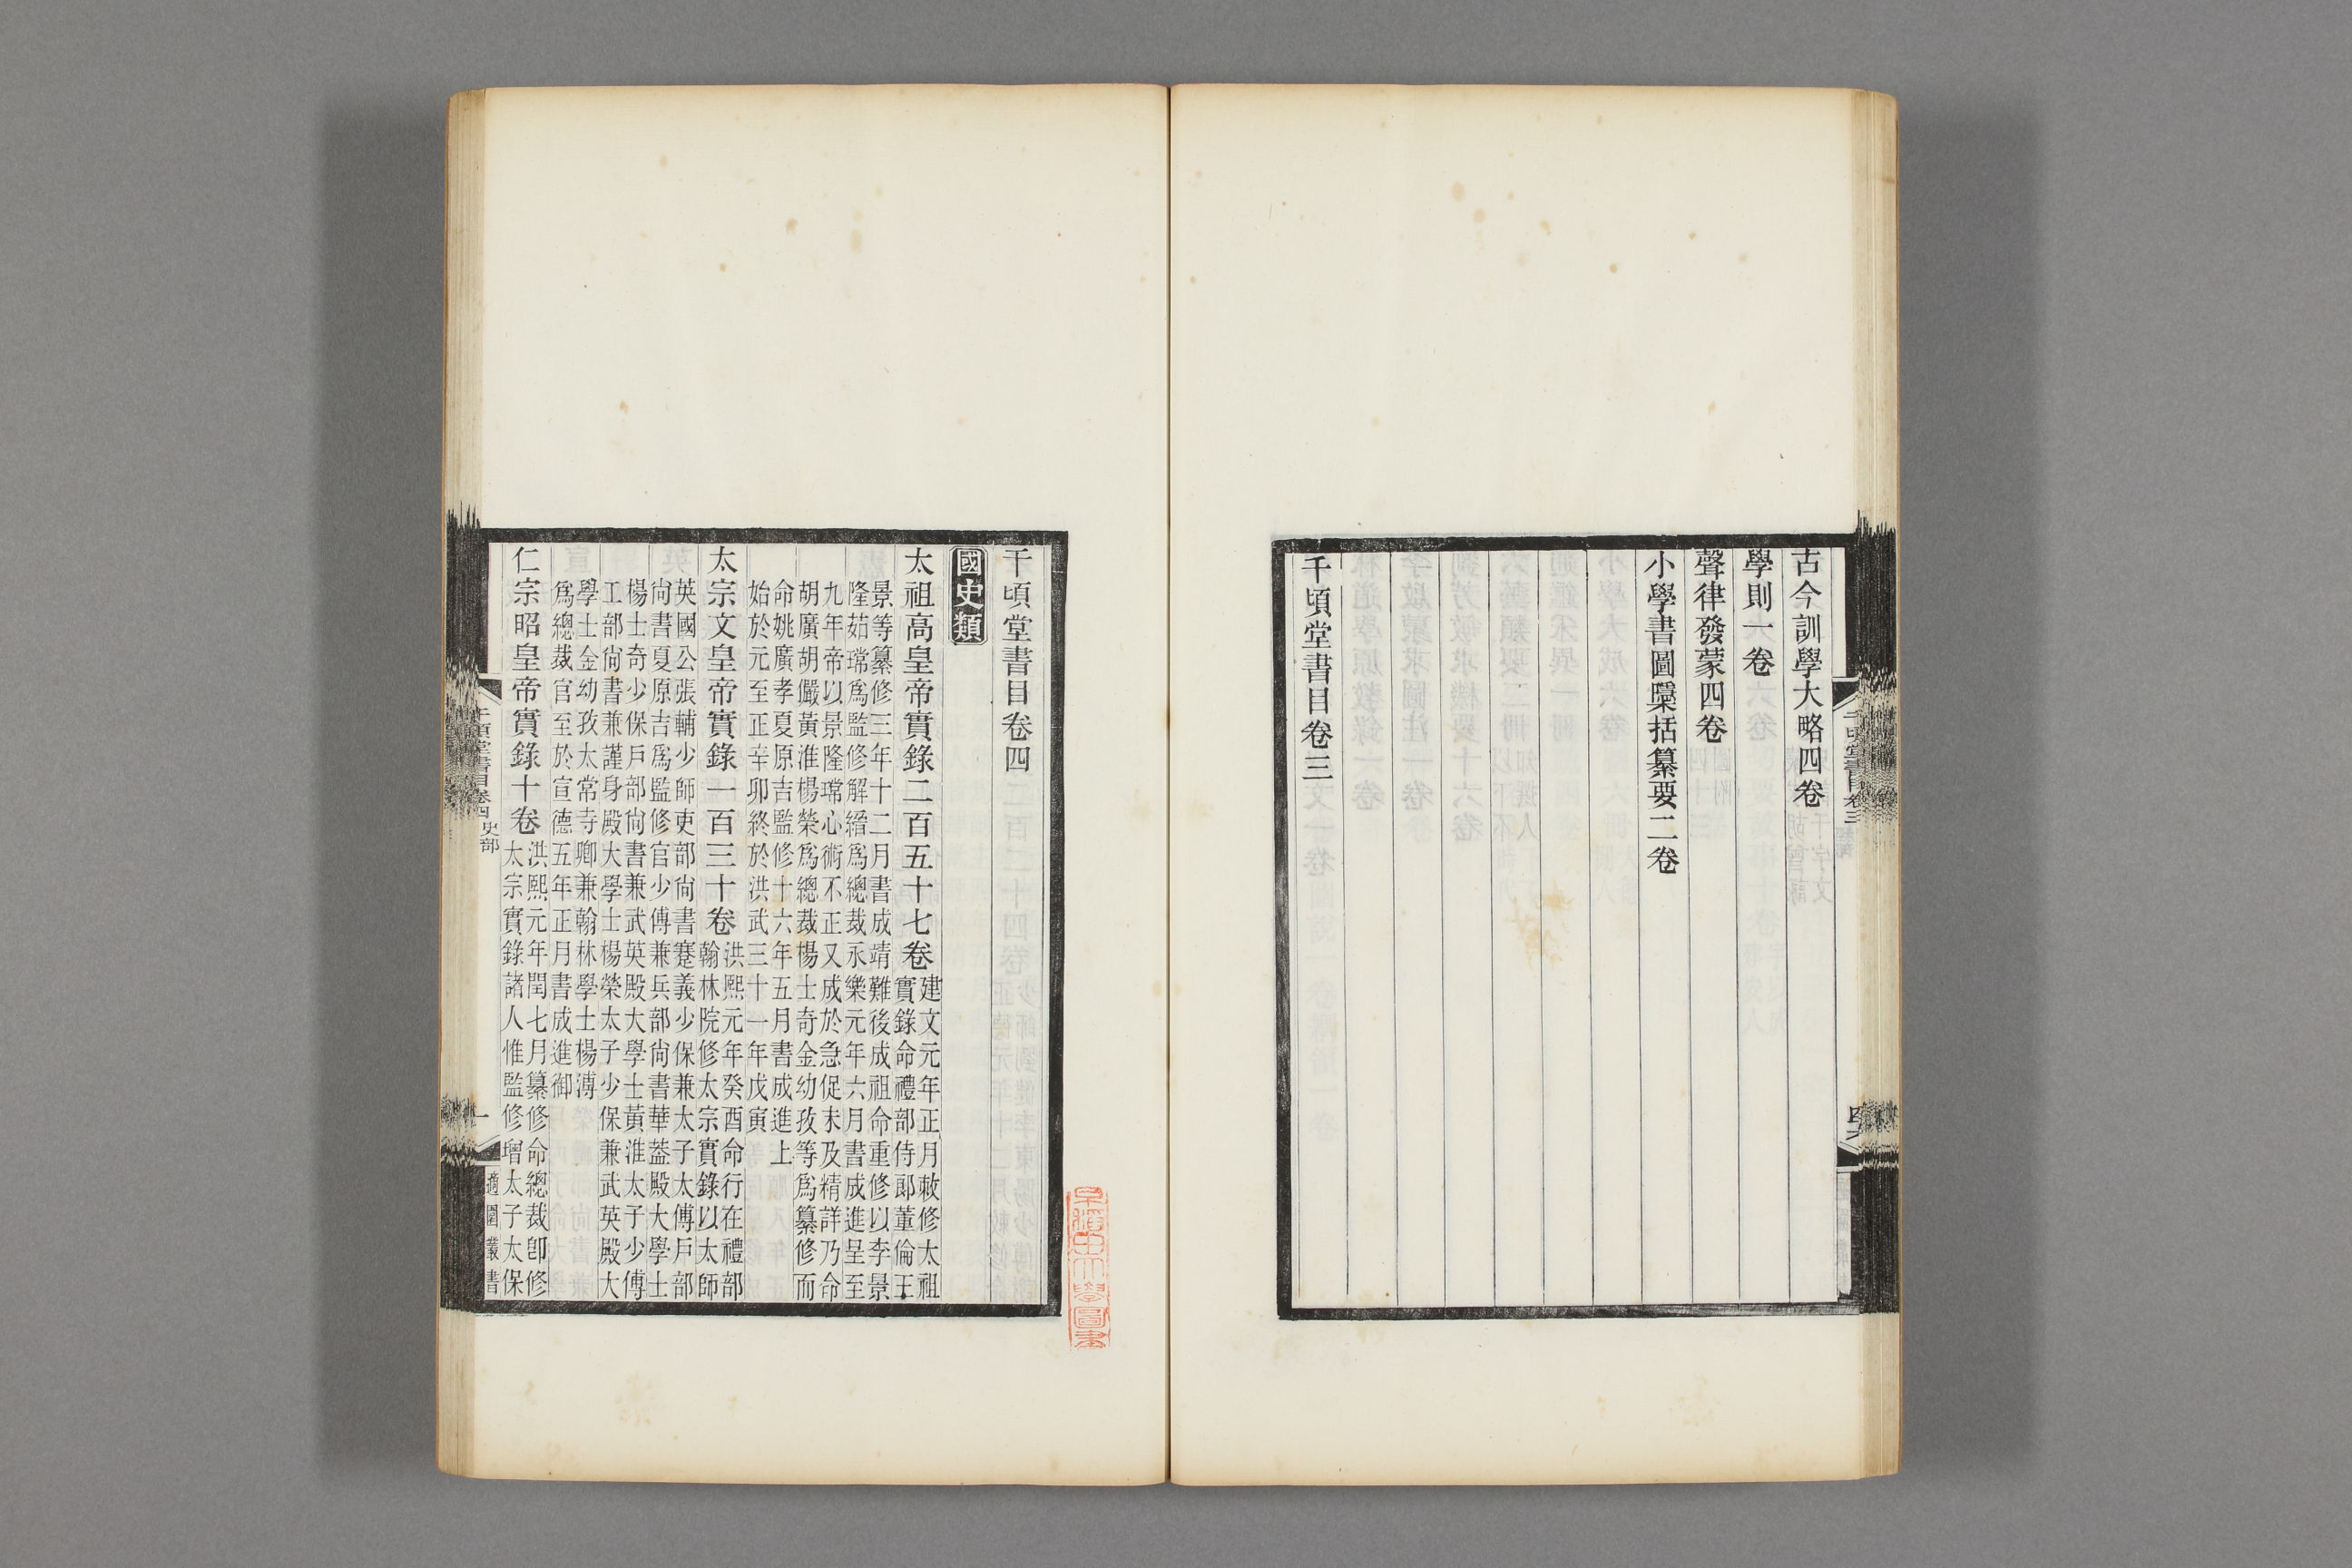 古今訓學大略四卷
學則一卷
聲律發蒙四卷
小學書圖檃括纂要二卷
千頃堂書目卷三
千頃堂書目卷三
千頃堂書目卷四
國史類
太祖高皇帝實錄二百五十七卷
建文元年正月敕修太祖
實錄命禮部侍郎董倫王
景等纂修三年十二月書成靖難後成祖命重修以李景
隆茹瑺爲監修解縉爲總裁永樂元年六月書成進呈至
九年帝以景隆瑺心術不正又成於急促未及精詳乃命
胡廣胡儼黃淮楊榮爲總裁楊士奇金幼孜等爲纂修而
命姚廣孝夏原吉監修十六年五月書成進上
始於元至正辛卯終於洪武三十一年戊寅
太宗文皇帝實錄一百三十卷
洪熙元年癸酉命行在禮部
翰林院修太宗實錄以太師
英國公張輔少師吏部尙書蹇義少保兼太子太傅戶部
尙書夏原吉爲監修官少傅兼兵部尙書華蓋殿大學士
楊士奇少保戶部尙書兼武英殿大學士黃淮太子少傅
工部尙書兼謹身殿大學士楊榮太子少保兼武英殿大
學士金幼孜太常寺卿兼翰林學士楊溥
爲總裁官至於宣德五年正月書成進御
仁宗昭皇帝實錄十卷
洪熙元年閏七月纂修命總裁卽修
太宗實錄諸人惟監修增太子太保
千頃堂書目卷四 史部
一
適園叢書
早稻田大學圖書